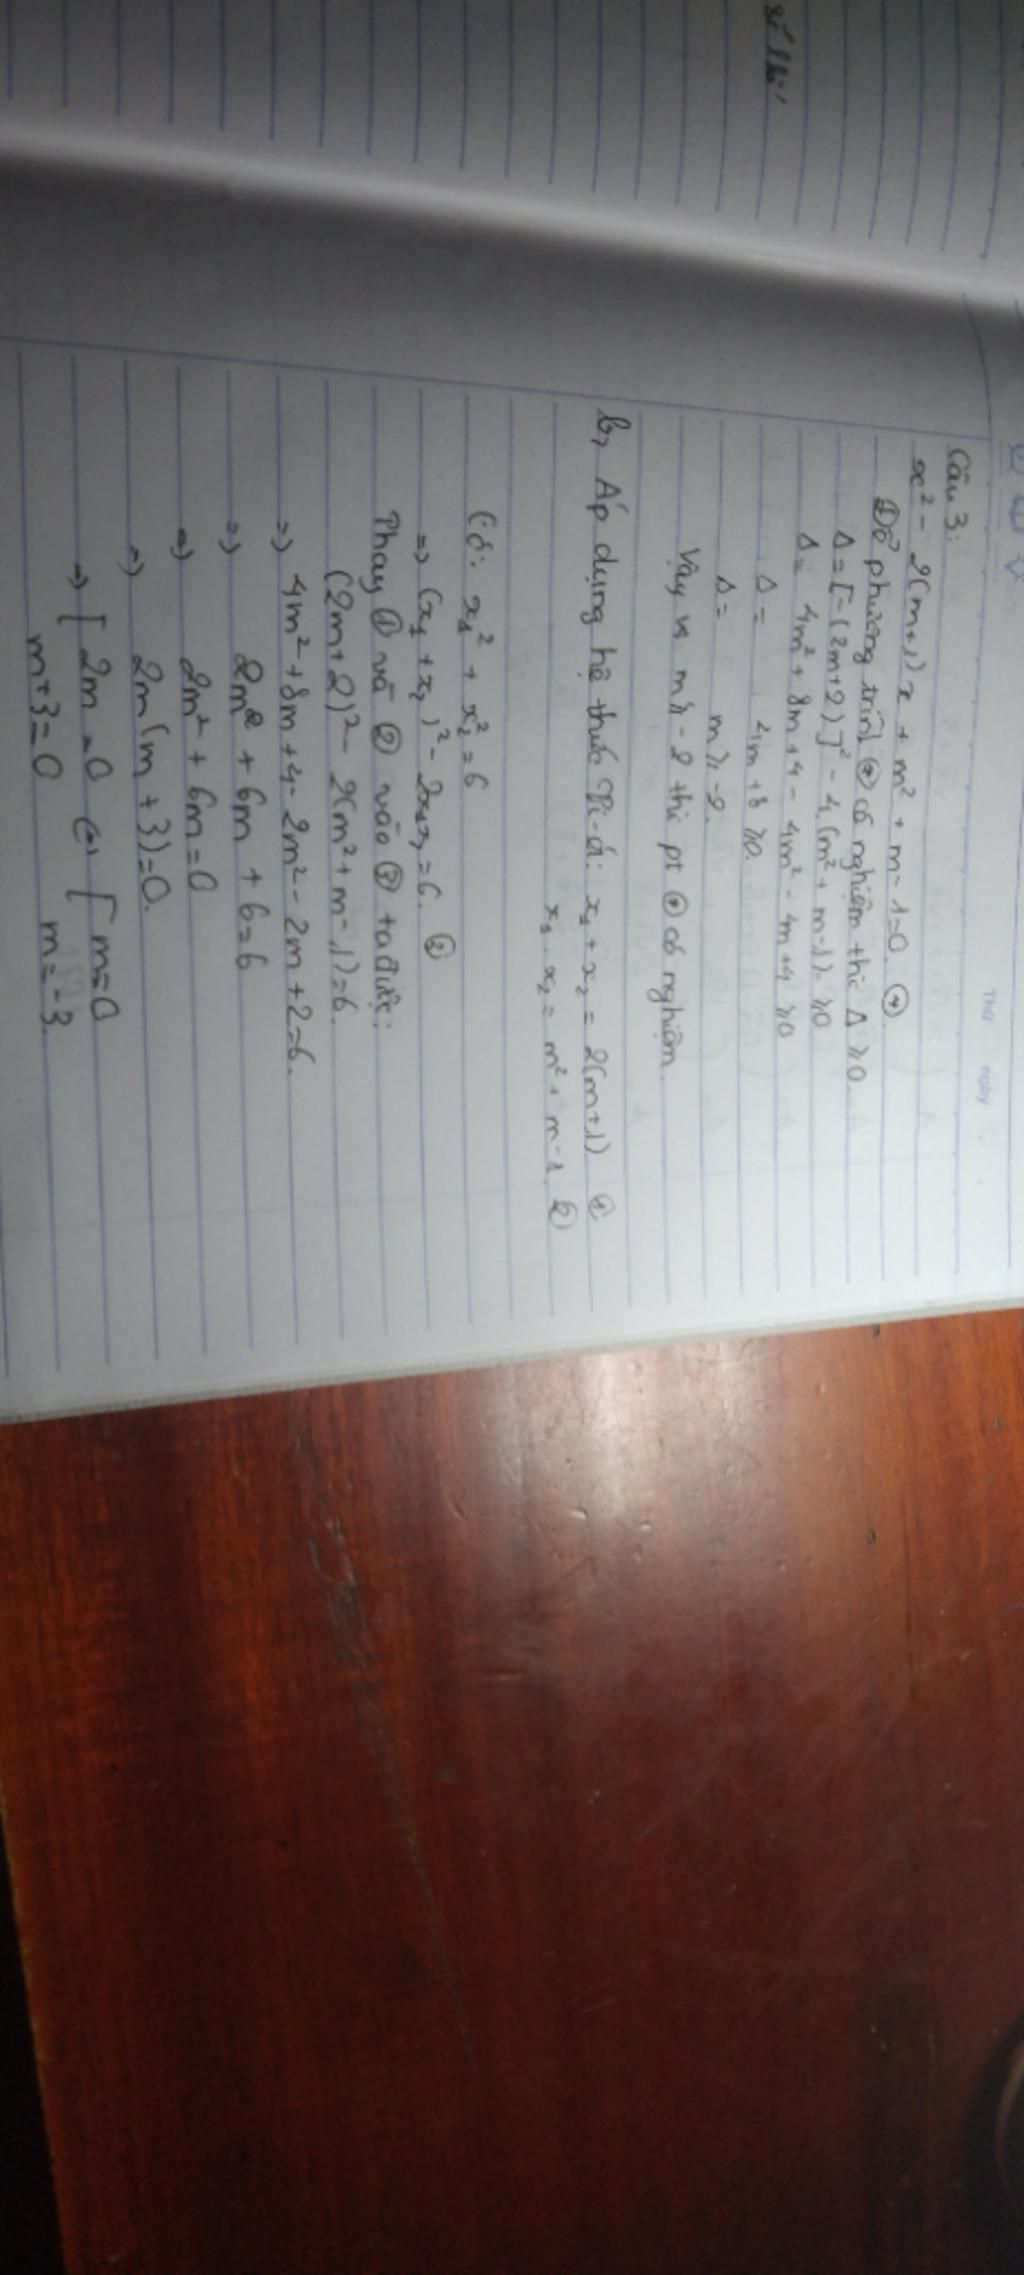 Thứ ngày
Câu 3:
x² - 2(m+1)x + m² + m - 1 = 0 (*)
Để phương trình (*) có nghiệm thì Δ ≥ 0
Δ = [-(2m+2)]² - 4.(m² + m - 1) ≥ 0
Δ = 4m² + 8m + 4 - 4m² - 4m + 4 ≥ 0
Δ = 4m + 8 ≥ 0
Δ = m ≥ -2.
Vậy vs m ≥ -2 thì pt (*) có nghiệm
b, Áp dụng hệ thức Vi-ét: x₁ + x₂ = 2(m+1) (1)
x₁ . x₂ = m² + m - 1 (2)
Có: x₁² + x₂² = 6
=> (x₁ + x₂)² - 2x₁x₂ = 6. (3)
Thay (1) và (2) vào (3) ta được:
(2m+2)² - 2(m² + m - 1) = 6.
=> 4m² + 8m + 4 - 2m² - 2m + 2 = 6.
=> 2m² + 6m + 6 = 6
=> 2m² + 6m = 0
=> 2m(m + 3) = 0.
=> [ 2m = 0 <=> [ m = 0
m + 3 = 0 m = -3.